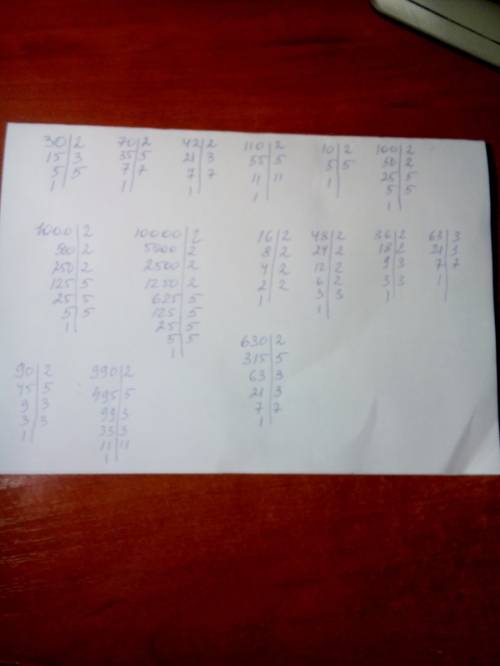 30|2 70|2 42|2 110|2 10|2 100|2
15|3 35|5 21|3 55|5 5|5 50|2
5|5 7|7 7|7 11|11 1| 25|5
1| 1| 1| 1| 5|5
1|
1000|2 10000|2 16|2 48|2 36|2 63|3
500|2 5000|2 8|2 24|2 18|2 21|3
250|2 2500|2 4|2 12|2 9|3 7|7
125|5 1250|2 2|2 6|2 3|3 1|
25|5 625|5 1| 3|3 1|
5|5 125|5 1|
1| 25|5
5|5
1|
90|2 990|2 630|2
45|5 495|5 315|5
9|3 99|3 63|3
3|3 33|3 21|3
1| 11|11 7|7
1| 1|